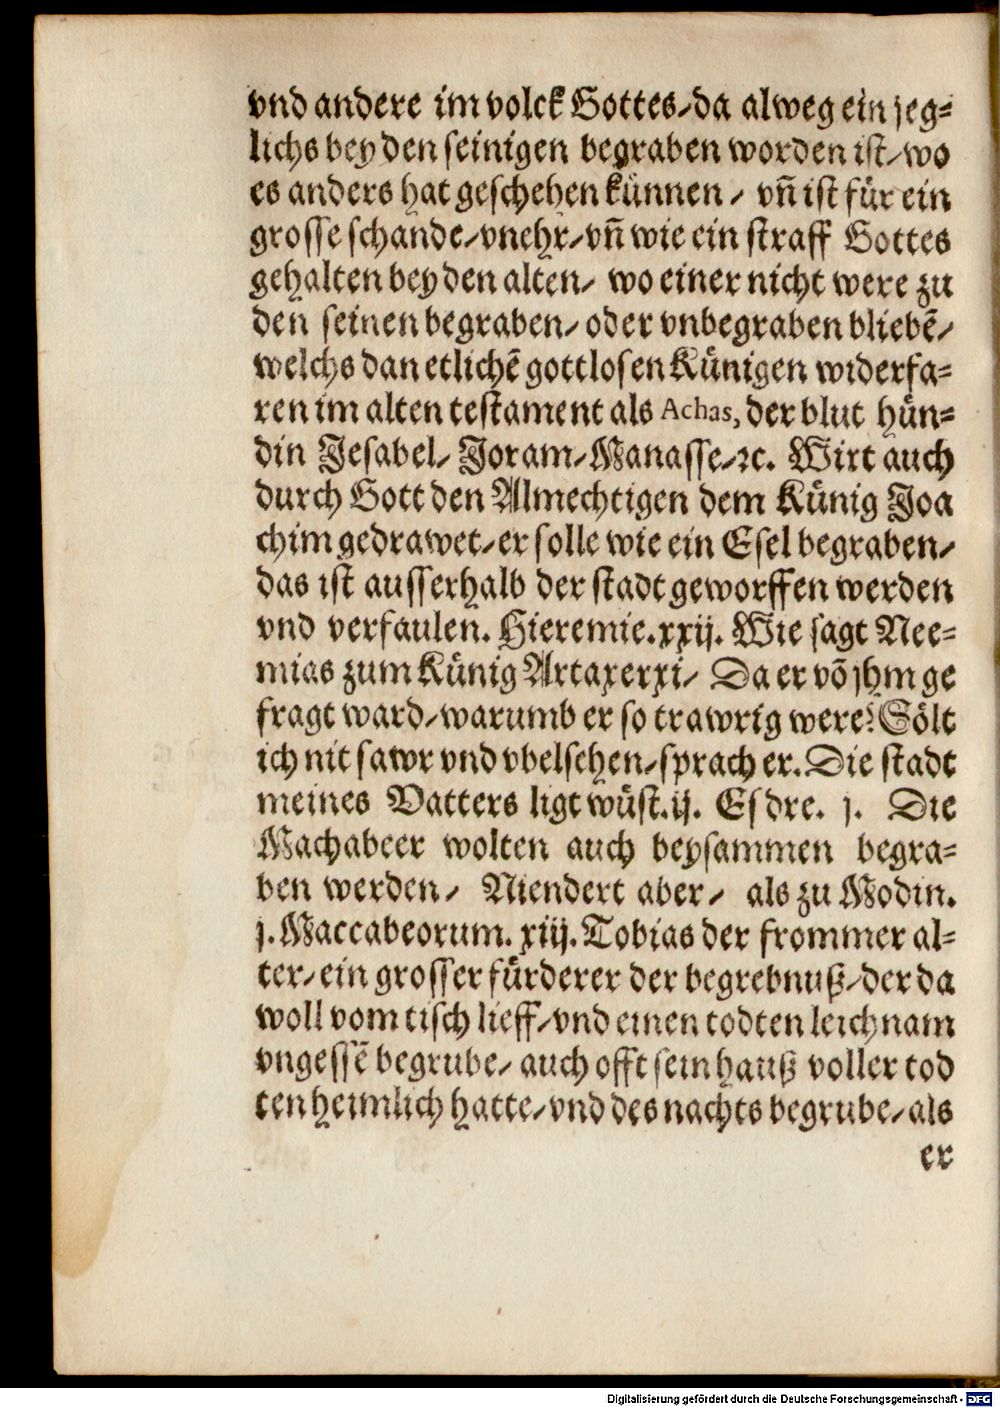 vnd andere im volck Gottes/da alweg ein jeg-
lichs bey den seinigen begraben worden ist/wo
es anders hat geschehen künnen / vñ ist für ein
grosse schande/vnehr/vñ wie ein straff Gottes
gehalten bey den alten/ wo einer nicht were zu
den seinen begraben/oder vnbegraben bliebẽ/
welchs dan etlichẽ gottlosen Künigen widerfa-
ren im alten testament als Achas, der blut hün-
din Jesabel/ Joram/Manasse/ꝛc. Wirt auch
durch Gott den Almechtigen dem Künig Joa
chim gedrawet/er solle wie ein Esel begraben/
das ist ausserhalb der stadt geworffen werden
vnd verfaulen. Hieremie.xxij. Wie sagt Nee-
mias zum Künig Artaxerxi/ Da er võ jhm ge
fragt ward/warumb er so trawrig were? Sölt
ich nit sawr vnd vbelsehen/sprach er. Die stadt
meines Vatters ligt wüst.ij. Esdre. j. Die
Machabeer wolten auch beysammen begra-
ben werden/ Niendert aber/ als zu Modin.
j.Maccabeorum.xiij.Tobias der frommer al-
ter/ein grosser fürderer der begrebnuß/der da
woll vom tisch lieff/vnd einen todten leichnam
vngessẽ begrube/ auch offt sein hauß voller tod
ten heimlich hatte/vnd des nachts begrube/als
er
Digitalisierung gefördert durch die Deutsche Forschungsgemeinschaft - DFG